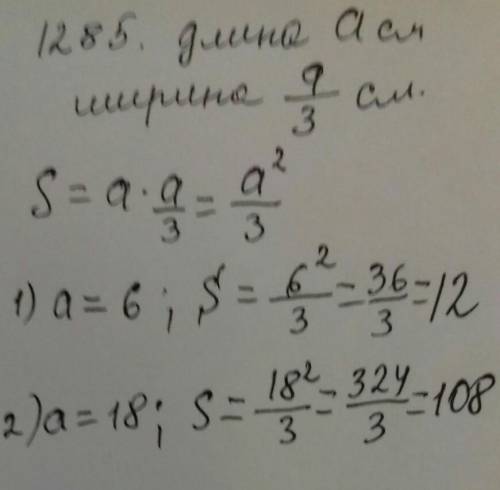 1285. длина a см
ширина a/3 см.
S = a · a/3 = a²/3
1) a = 6 ; S = 6²/3 = 36/3 = 12
2) a = 18 ; S = 18²/3 = 324/3 = 108